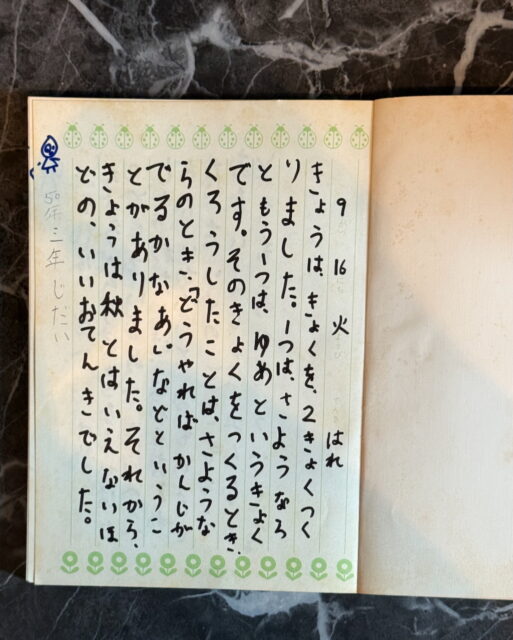 9 16 火 はれ
きょうは、きょくを、2きょくつく
りました。1つは、さようなら
と もう一つは、ゆめというきょく
です。そのきょくをつくるとき、
くろうしたことは、さような
らのとき、「どうやれば かんじが
でるかなあ。」などというこ
とがありました。それから、
きょうは秋とはいえないほ
どの、いいおてんきでした。
50年 三年じだい